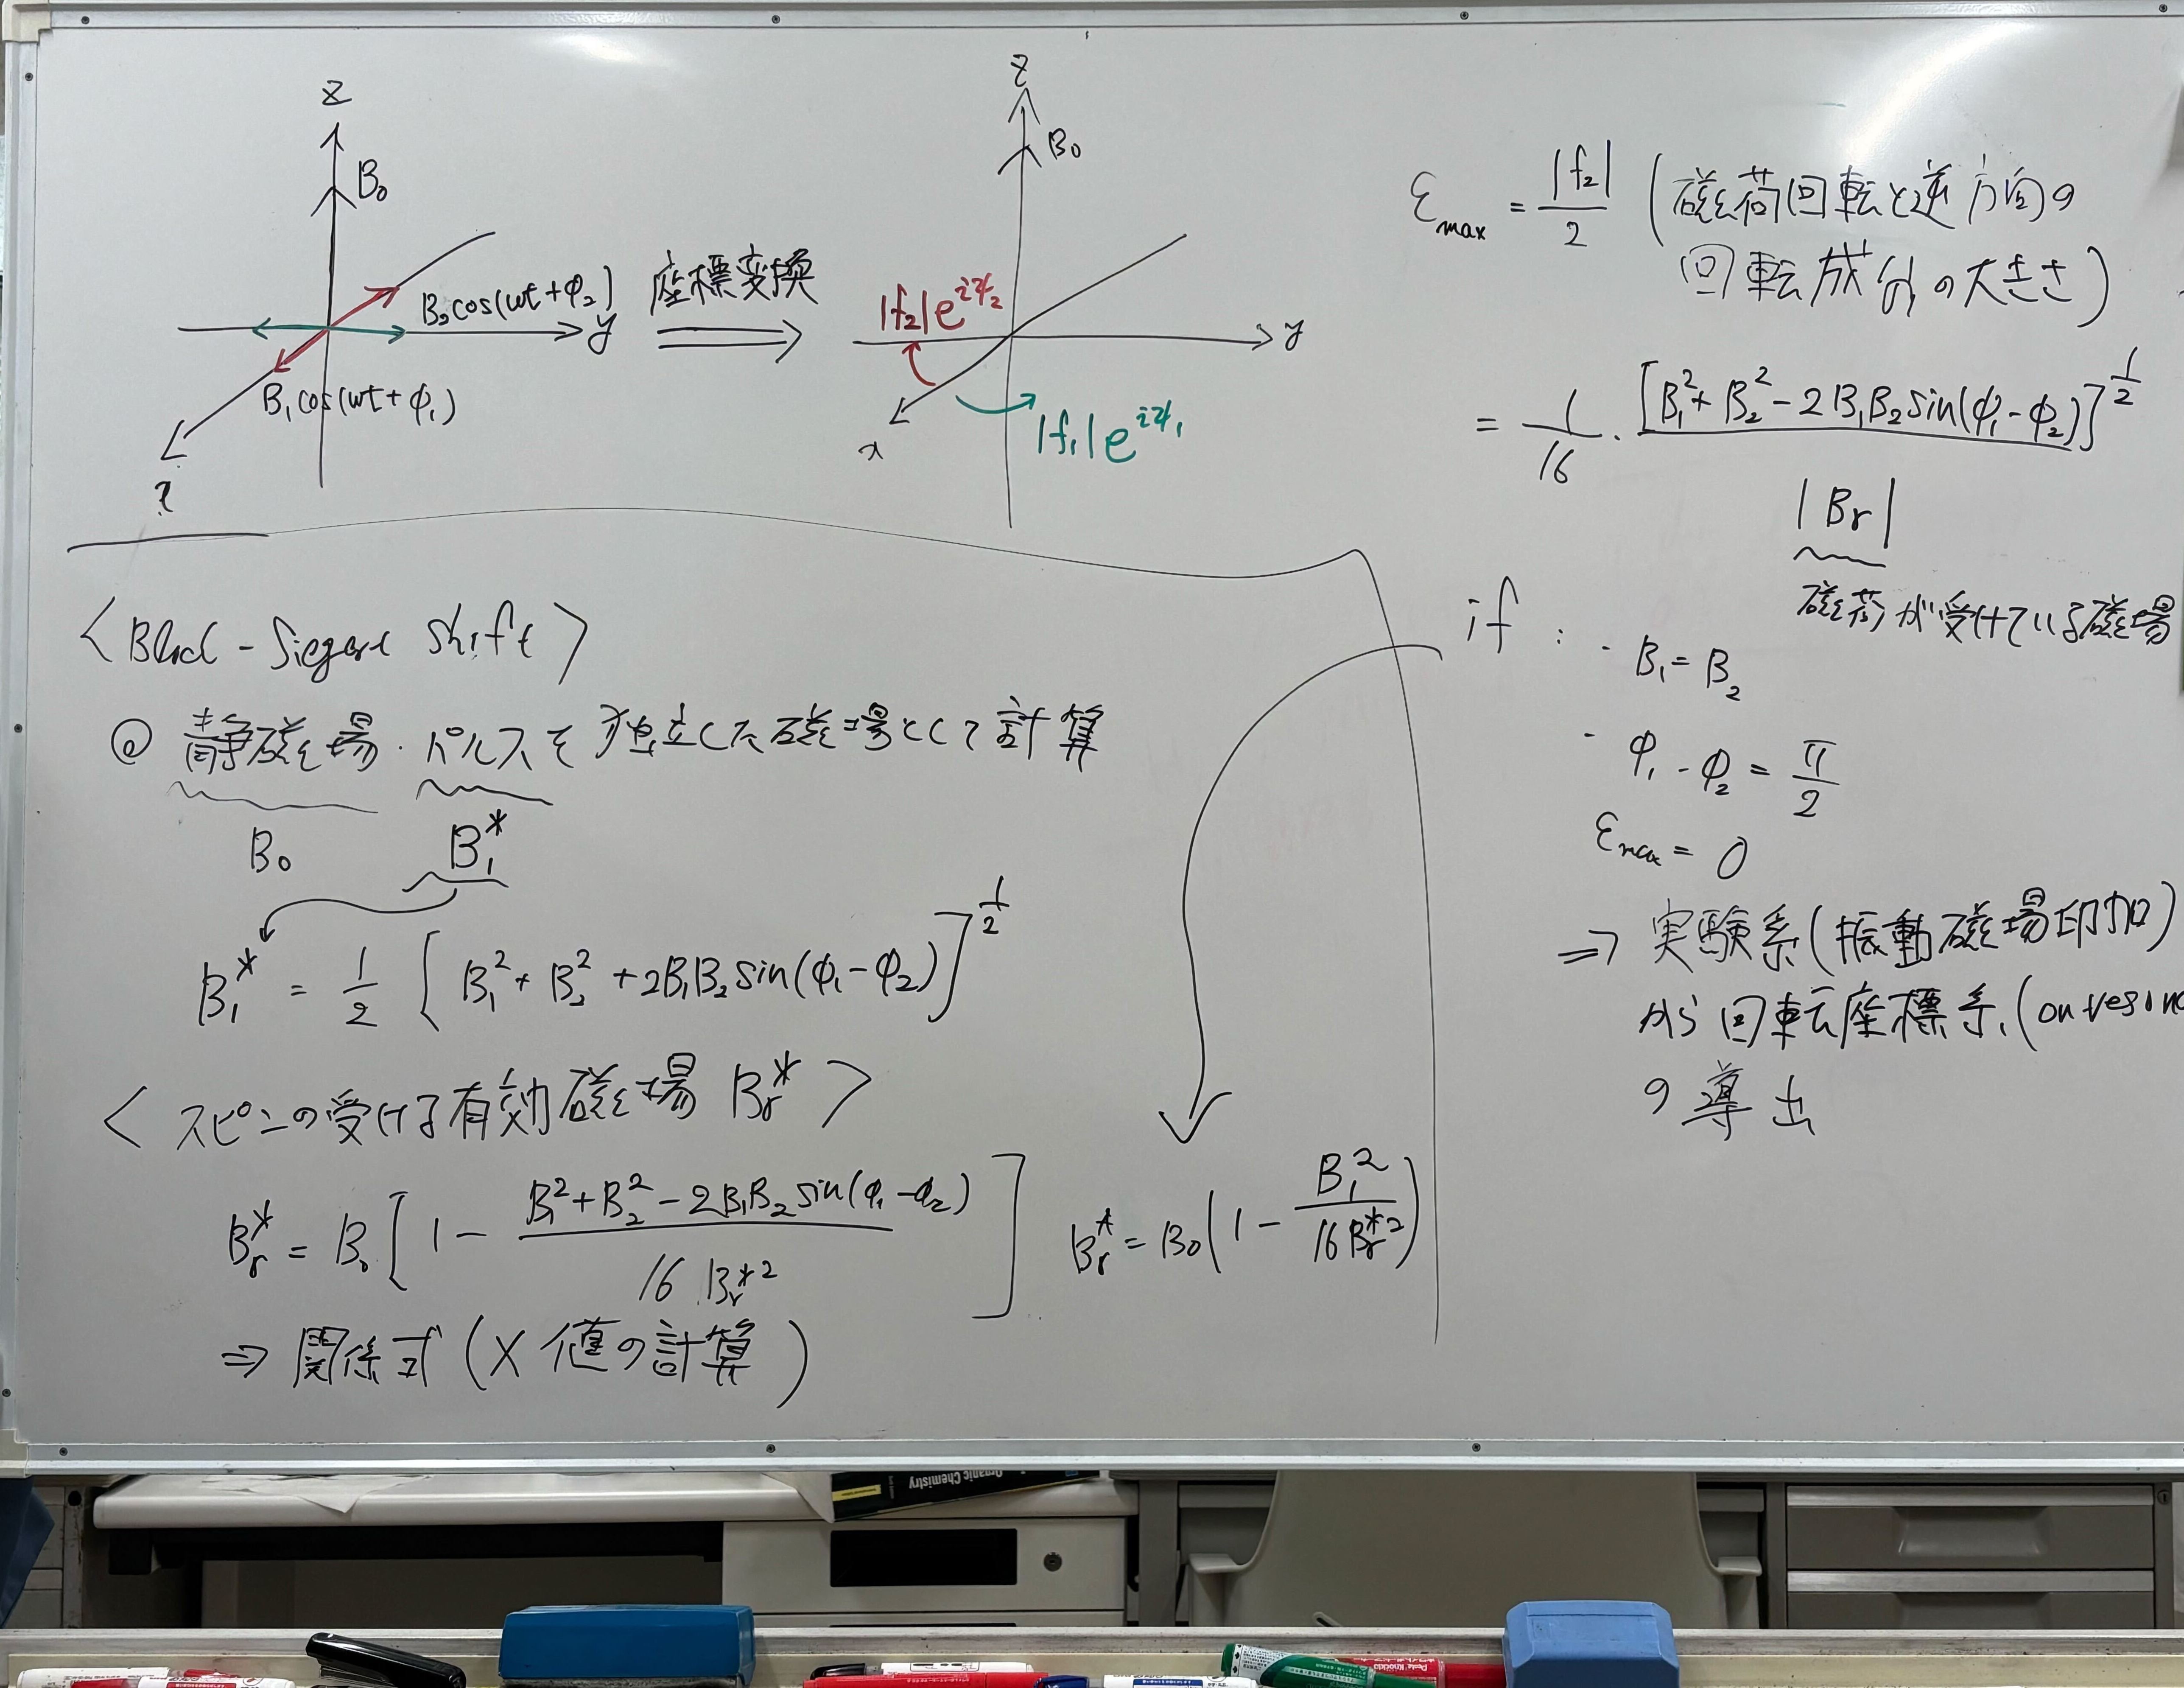 z
B₀
B₂cos(ωt+φ₂)
y
B₁cos(ωt+φ₁)
座標変換
z
B₀
|f₂|e^{iψ₂}
y
x
|f₁|e^{iψ₁}
ε_max = |f₂|/2 (磁荷回転と逆方向の
回転成分の大きさ)
= 1/16 · [B₁²+B₂²-2B₁B₂sin(φ₁-φ₂)]^{1/2} / |Br|
磁荷が受けている磁場
if : · B₁=B₂
· φ₁-φ₂ = π/2
ε_max = 0
⇒ 実験系(振動磁場印加)
から回転座標系(on reson
の導出
<Bloch-Siegert shift>
◎ 静磁場・パルスを独立した磁場として計算
B₀ B₁*
B₁* = 1/2 [B₁²+B₂²+2B₁B₂sin(φ₁-φ₂)]^{1/2}
<スピンの受ける有効磁場 Br*>
Br* = B₀[1 - (B₁²+B₂²-2B₁B₂sin(φ₁-φ₂))/(16 Br*²)]
Br* = B₀(1 - B₁²/(16Br*²))
⇒ 関係式(X値の計算)
Organic Chemistry